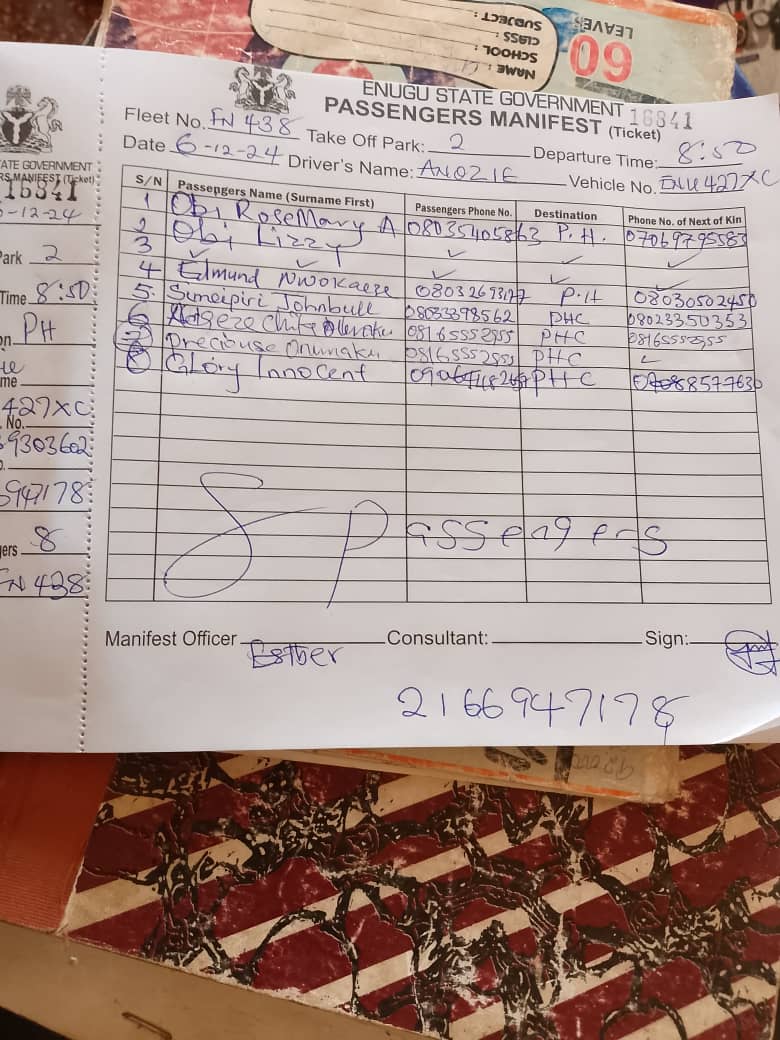 LEAVER
60
NAME :
SCHOOL :
CLASS :
SUBJECT :
ATE GOVERNMENT
RS MANIFEST (Ticket)
16841
-12-24
Park 2
Time 8:50
on PH
me
427XC
No.
9303602
947178
gers 8
FN 438
ENUGU STATE GOVERNMENT 16841
PASSENGERS MANIFEST (Ticket)
Fleet No. FN 438 Take Off Park: 2 Departure Time: 8:50
Date 6-12-24 Driver's Name: ANOZIE Vehicle No. ENU 427XC
S/N Passengers Name (Surname First) Passengers Phone No. Destination Phone No. of Next of Kin
1 Obi RoseMary A 08035405863 P.H. 07069795583
2 Obi Lizzy ✓ ✓ ✓
3 ✓ ✓ ✓ ✓
4 Edmund Nwokaeze 08032693177 P.H 08030502450
5. Simeipiri Johnbull 08033398562 PHC 08023350353
6 08165552955 PHC 08165552955
7 Preciouse Onuwaku 08165552955 PHC ✓
8 Glory Innocent PHC
8 Passengers
Manifest Officer Esther Consultant: Sign:
2166947178